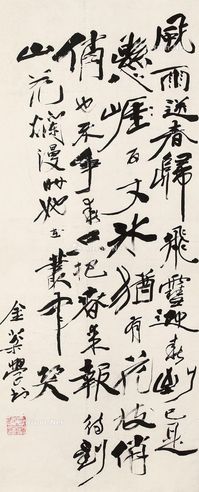 風雨送春歸飛雪迎春到已是
懸崖百丈冰猶有花枝俏
俏也不爭春只把春來報待到
山花爛漫時她在叢中笑
金